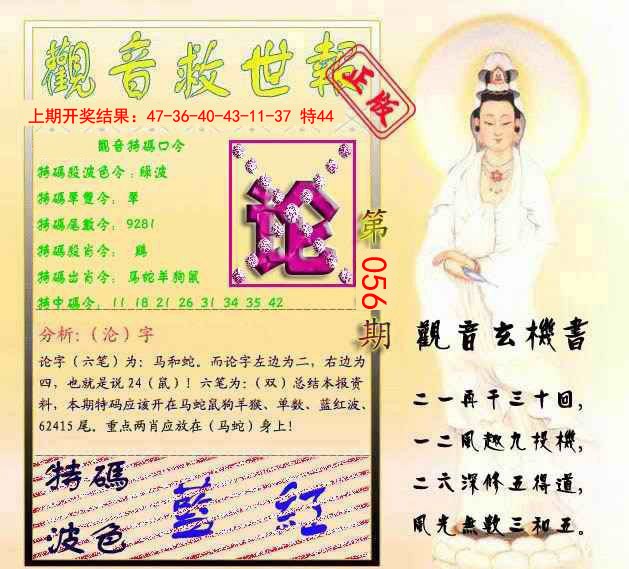 觀音救世報
正版
上期开奖结果：47-36-40-43-11-37 特44
觀音特碼口令
特碼段波色令：綠波
特碼單雙令： 單
特碼尾數令： 9281
特碼段肖令： 鷄
特碼出肖令： 馬蛇羊狗鼠
特中碼令： 11 18 21 26 31 34 35 42
论
第056期
分析:（沦）字
论字（六笔）为：马和蛇。而论字左边为二，右边为
四，也就是说 24（鼠）！六笔为:（双）总结本报资
料，本期特码应该开在马蛇鼠狗羊猴、单数、蓝红波、
62415 尾。重点两肖应放在（马蛇）身上！
特碼
波色
藍 紅
觀音玄機書
二一再干三十回，
一二風趣九投機，
二六深修五得道，
風光無數三和五。